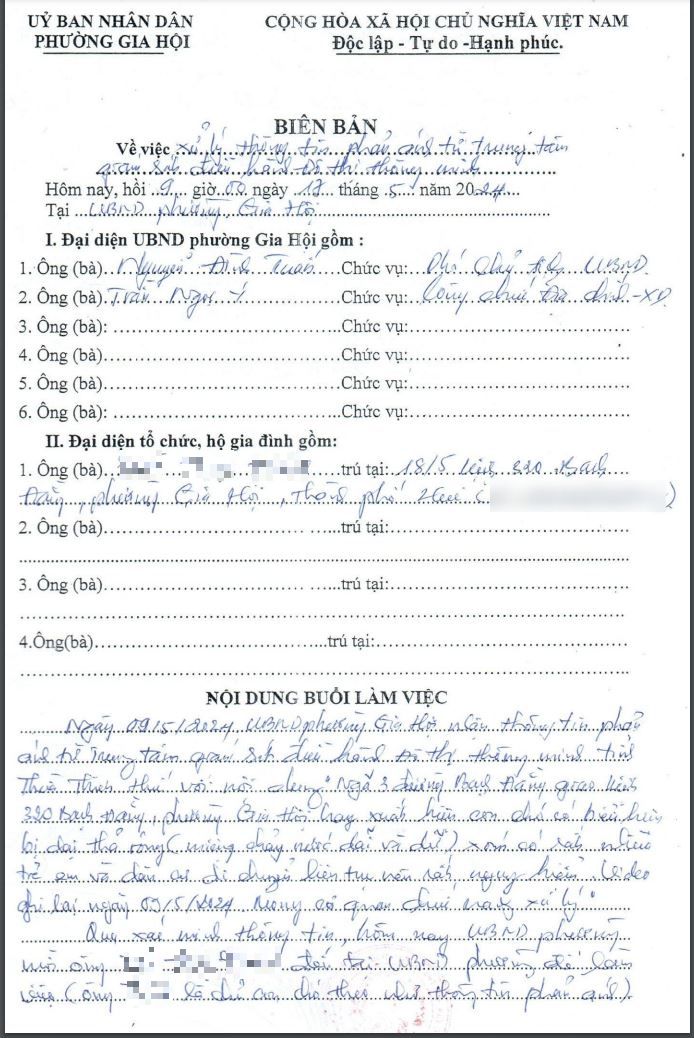 UỶ BAN NHÂN DÂN
PHƯỜNG GIA HỘI
CỘNG HÒA XÃ HỘI CHỦ NGHĨA VIỆT NAM
Độc lập - Tự do -Hạnh phúc.
BIÊN BẢN
Về việc xử lý thông tin phản ánh từ trung tâm
giám sát điều hành đô thị thông minh
Hôm nay, hồi 9 giờ 00 ngày 17 tháng 5 năm 2024
Tại UBND phường Gia Hội
I. Đại diện UBND phường Gia Hội gồm :
1. Ông (bà) Nguyễn Đình Tuấn Chức vụ: Phó Chủ tịch UBND
2. Ông (bà) Trần Ngọc Ý Chức vụ: Công chức Địa chính-XD
3. Ông (bà): Chức vụ:
4. Ông (bà) Chức vụ:
5. Ông (bà) Chức vụ:
6. Ông (bà): Chức vụ:
II. Đại diện tổ chức, hộ gia đình gồm:
1. Ông (bà) trú tại: 18/5 kiệt 320 Bạch
Đằng, phường Gia Hội, thành phố Huế ( )
2. Ông (bà) trú tại:
3. Ông (bà) trú tại:
4.Ông(bà) trú tại:
NỘI DUNG BUỔI LÀM VIỆC
Ngày 09/5/2024 UBND phường Gia Hội nhận thông tin phản
ánh từ Trung tâm giám sát điều hành đô thị thông minh tỉnh
Thừa Thiên Huế với nội dung "Ngã 3 đường Bạch Đằng giao kiệt
320 Bạch Đằng, phường Gia Hội hay xuất hiện con chó có biểu hiện
bị dại thả rông (miệng chảy nước dãi và dữ) xóm có rất nhiều
trẻ em và dân cư di chuyển liên tục nên rất nguy hiểm. Video
ghi lại ngày 09/5/2024. Mong cơ quan chức năng xử lý"
Qua xác minh thông tin, hôm nay UBND phường
mời ông đến tại UBND phường để làm
việc (ông là chủ con chó theo như thông tin phản ánh).